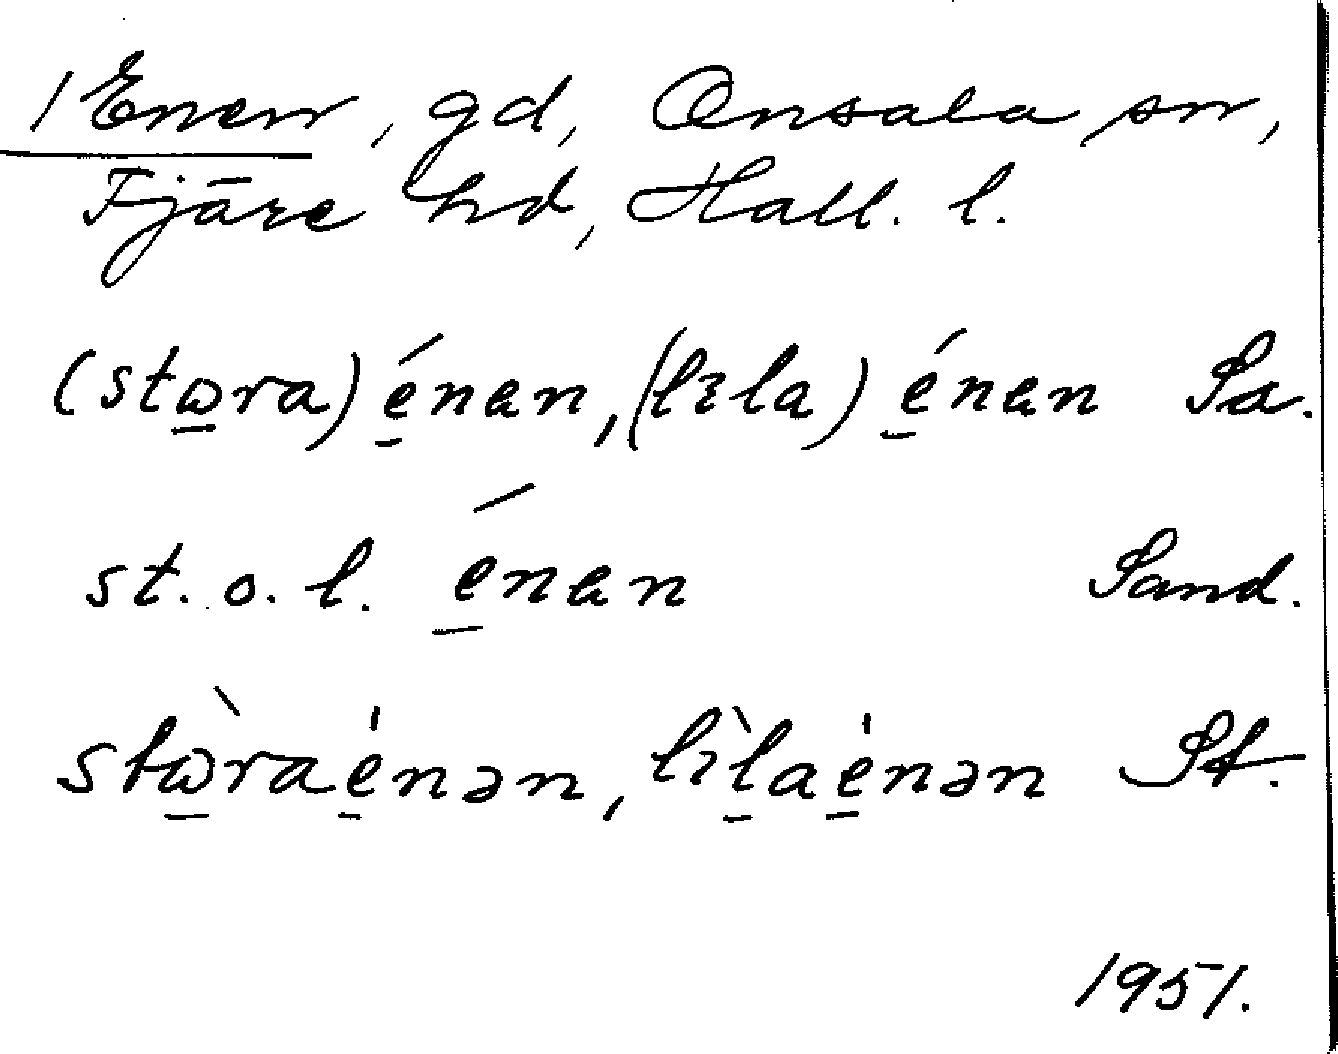 1 Enen, gd, Onsala sn,
Fjäre hd, Hall. l.
(stω̱ra) é̱nɐn, (lɪla) é̱nɐn Sa.
st. o. l. é̱nɐn Sand.
stὼ̱raé̱nən, lɪ̀ḻaé̱nən St.
1951.